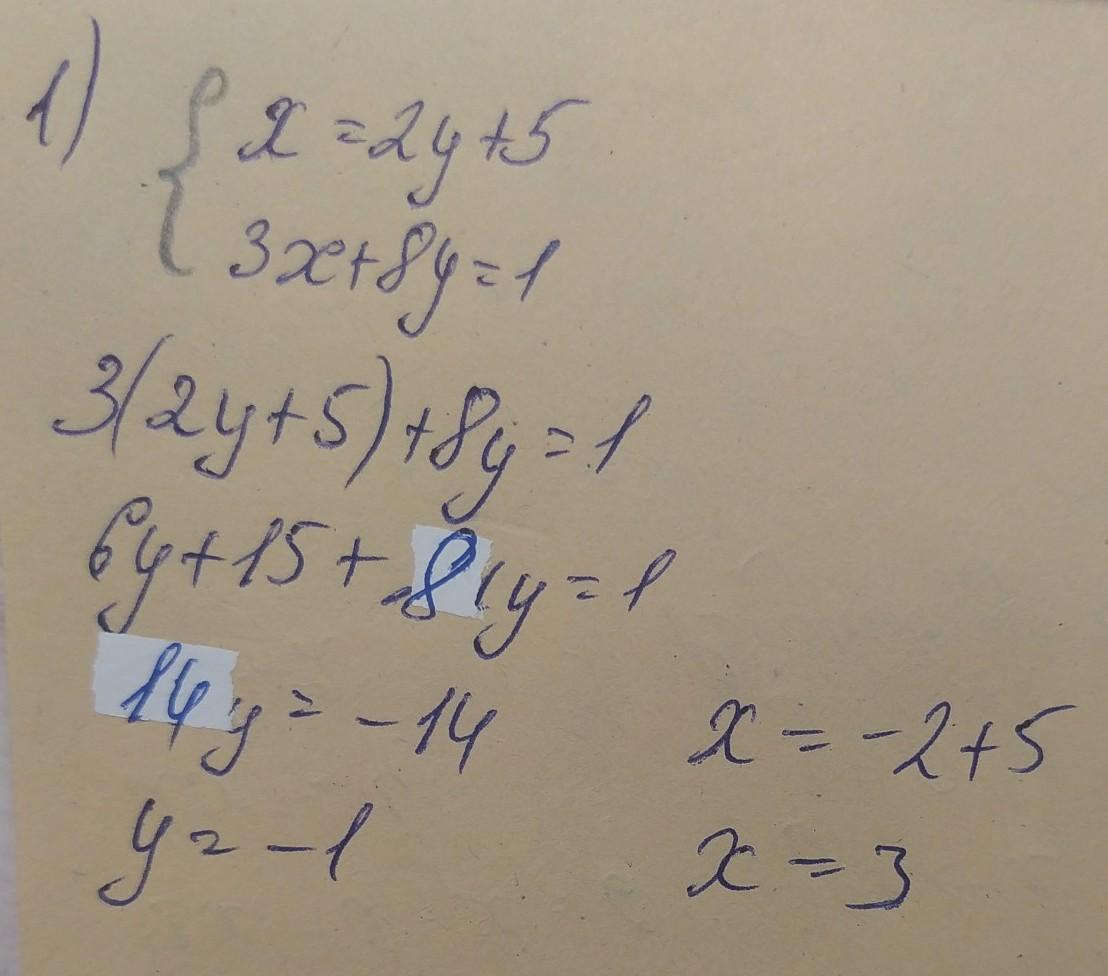 1) { x = 2y + 5
3x + 8y = 1
3(2y + 5) + 8y = 1
6y + 15 + 8y = 1
14y = -14
x = -2 + 5
y = -1
x = 3